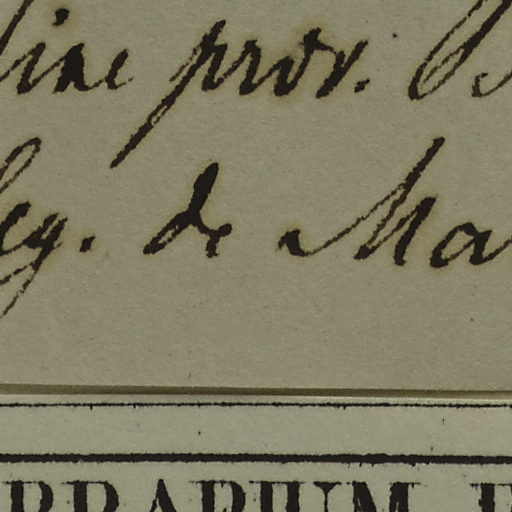 line prov. B
leg. de Ma
RBARIUM